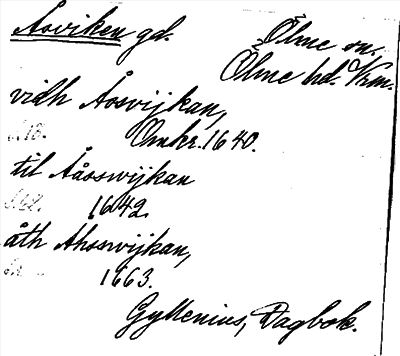 Åsviken gd. Ölme sn.
Ölme hd. Vrm.
vidh Åosvijkan,
Omkr. 1640.
til Ååsswijkan
1642.
åth Ahsswijkan,
1663.
Gyllenius, Dagbok.